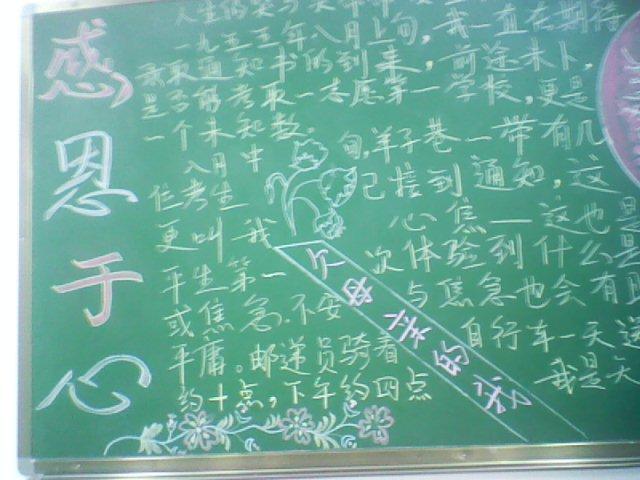 感恩于心
人生的
一九五三年八月上旬，我一直在期待
录取通知书的到来，前途未卜，
是否能考取一志愿第一学校，更是
一个未知数。
八月中旬，羊子巷一带有几
位考生已接到通知，这
更叫我心焦——这也是
平生第一次体验到什么是
或焦急、不安与焦急也会有
平庸。邮递员骑着自行车一天送
约十点，下午约四点
我是天
我的亲母